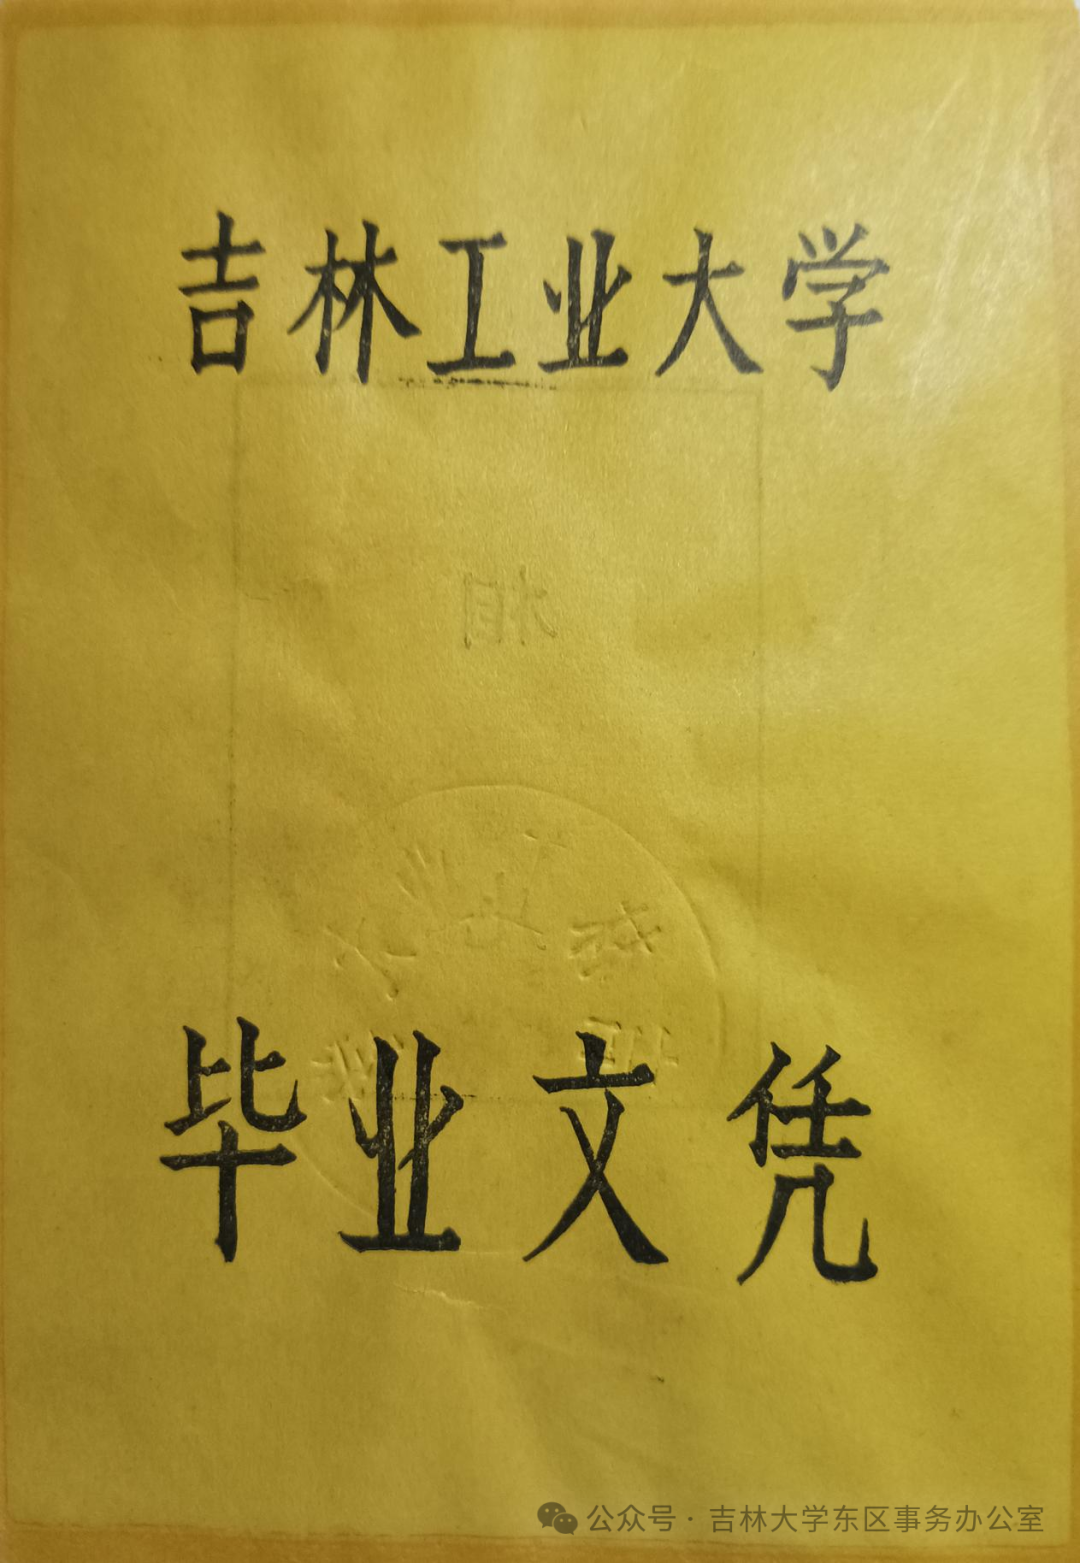 吉林工业大学
毕业文凭
公众号·吉林大学东区事务办公室